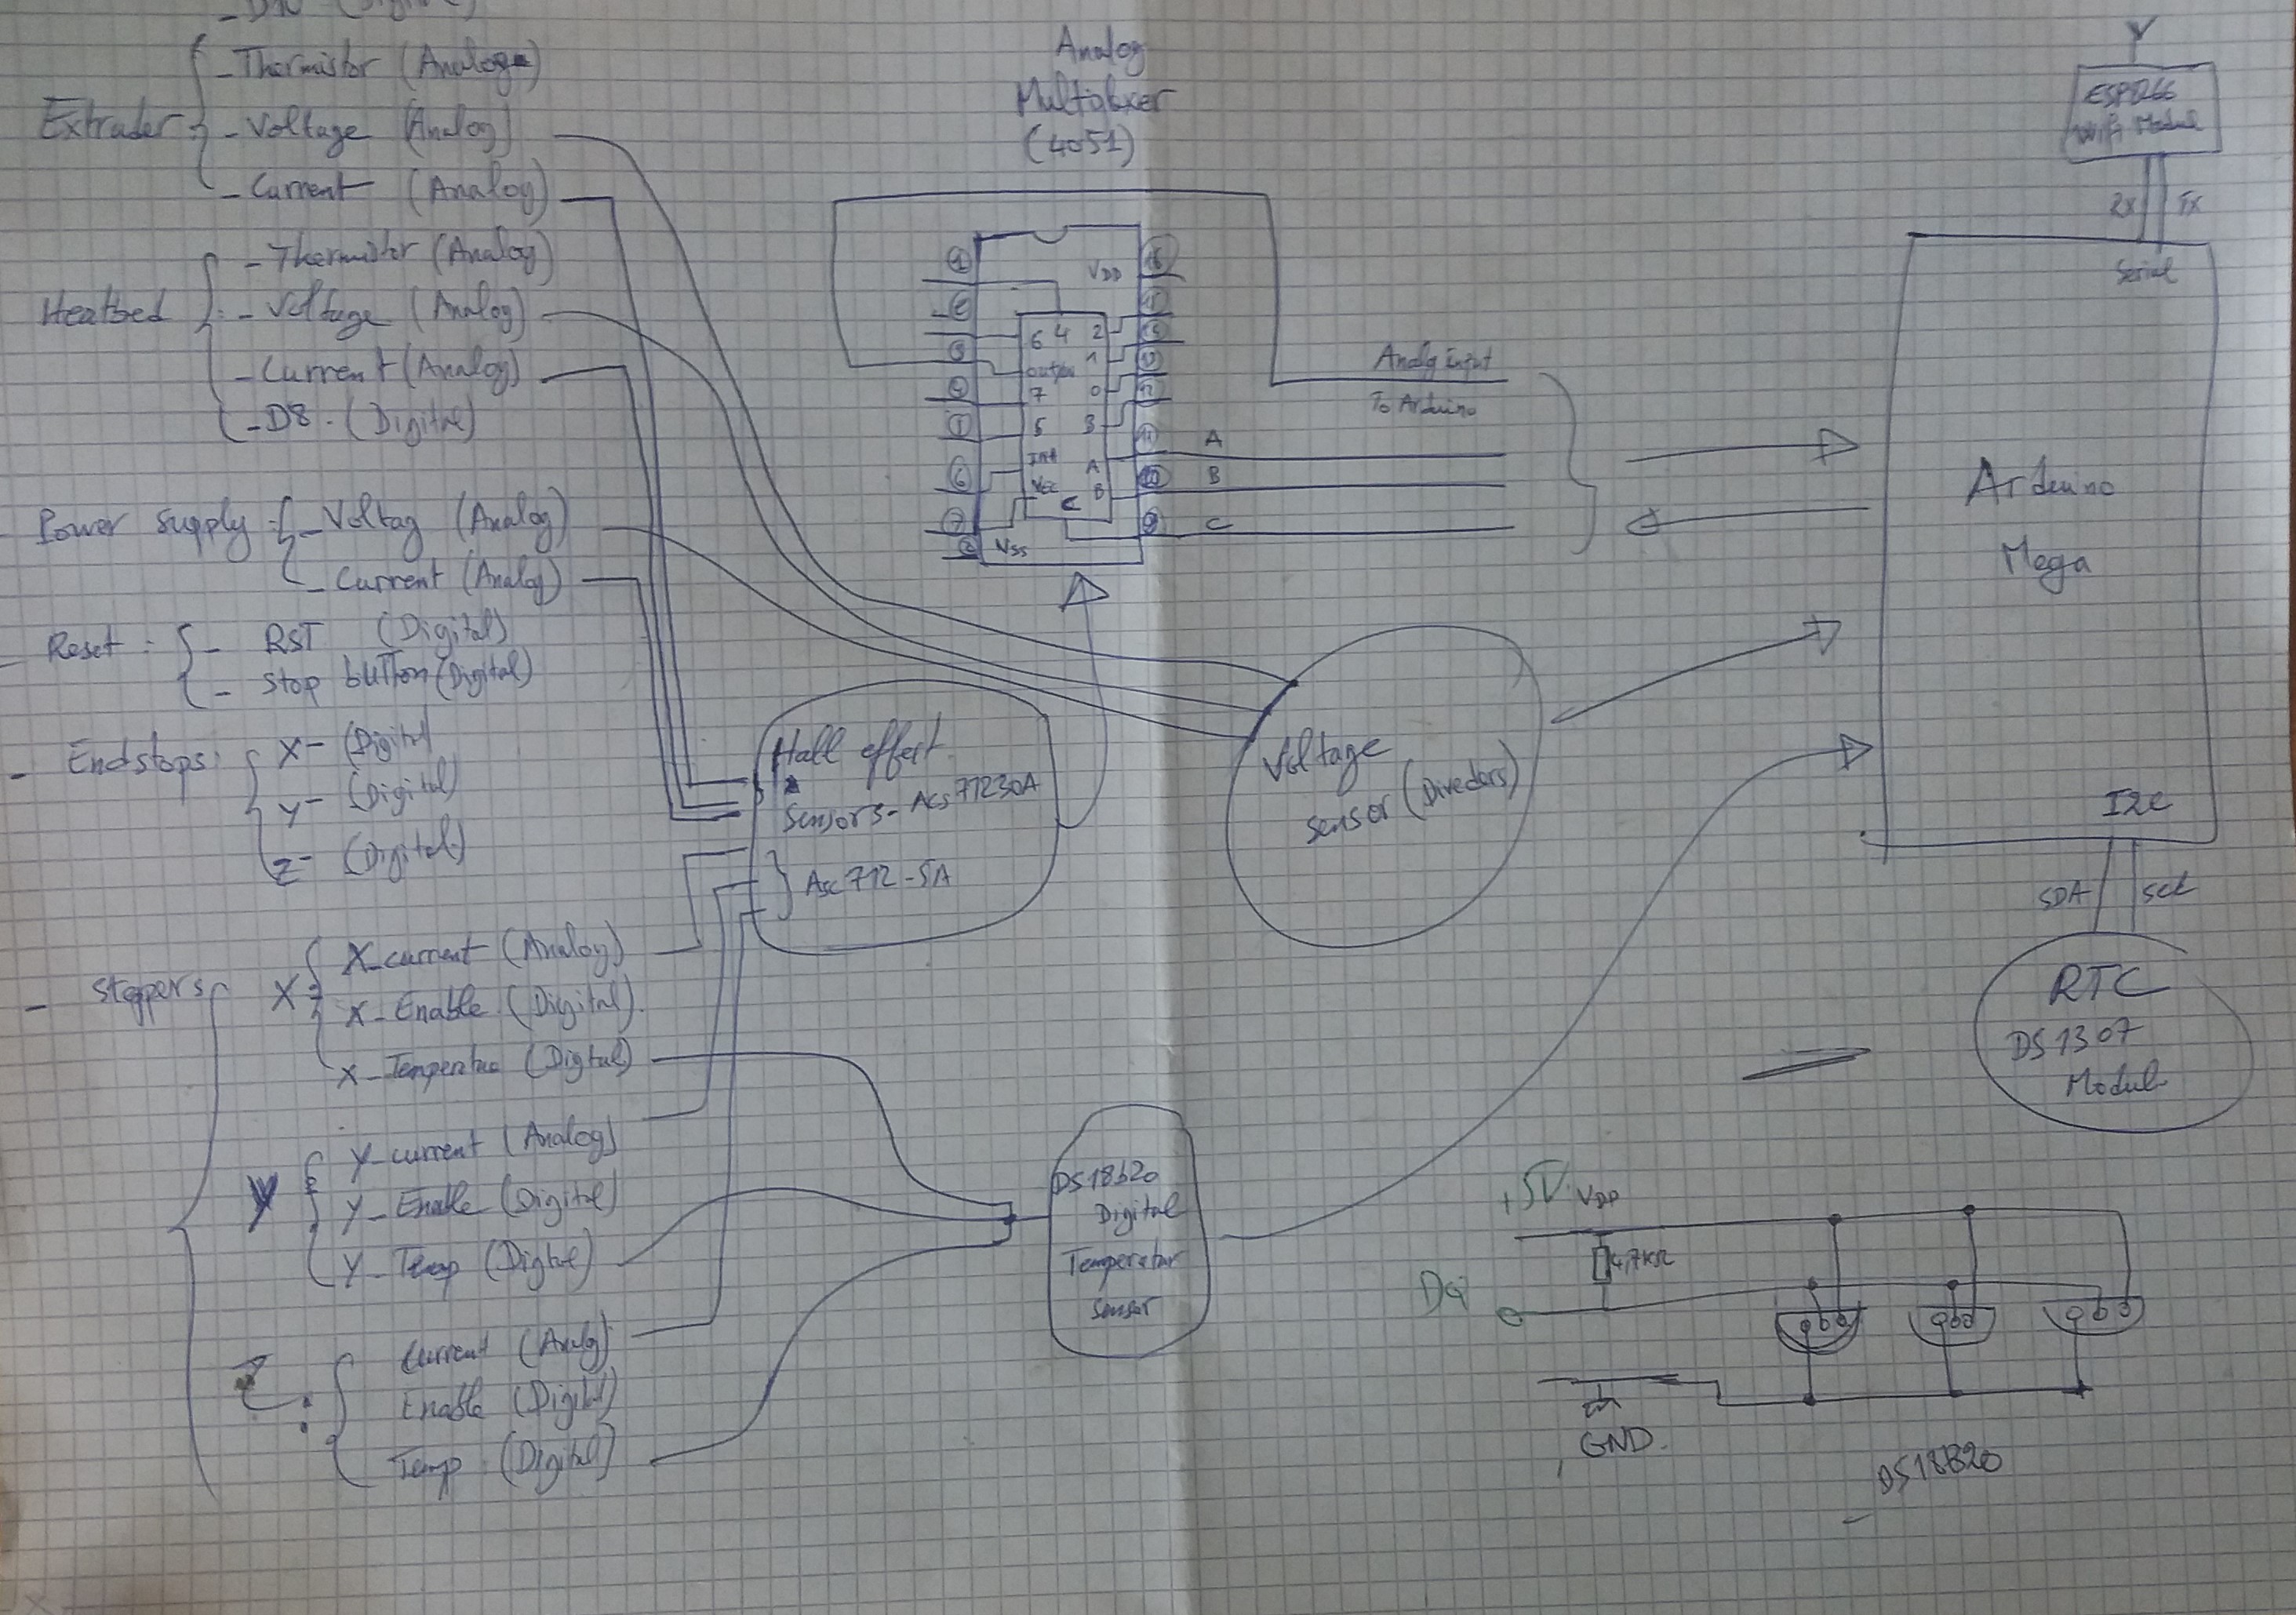 - D10 (Digital)
Extruder :
- Thermistor (Analog)
- Voltage (Analog)
- Current (Analog)
Heatbed :
- Thermistor (Analog)
- Voltage (Analog)
- Current (Analog)
- D8 - (Digital)
- Power Supply :
- Voltag (Analog)
- Current (Analog)
- Reset :
- RST (Digital)
- Stop button (Digital)
- Endstops :
X- (Digital
Y- (Digital)
Z- (Digital)
- Steppers
X :
X_current (Analog)
X_Enable (Digital)
X_Temperatue (Digital)
Y :
Y_current (Analog)
Y_Enable (Digital)
Y_Temp (Digital)
Z :
Current (Analog)
Enable (Digital)
Temp (Digital)
Analog
Multiplexer
(4051)
1
VDD 16
6 4 2
3 output 1
7 0
5 3
6 Inh A 11
VEE B 10
7 C 9
VSS
Analog input
To Arduino
A
B
C
Hall effect
Sensors - ACS71230A
Asc712-5A
Voltage
Sensor (Divedors)
DS18b20
Digital
Temperatur
Sensor
ESP8266
Wifi Modul
RX TX
Serial
Arduino
Mega
I2C
SDA SCL
RTC
DS1307
Modul
+5V VDD
4,7KΩ
DQ
GND
- DS18B20